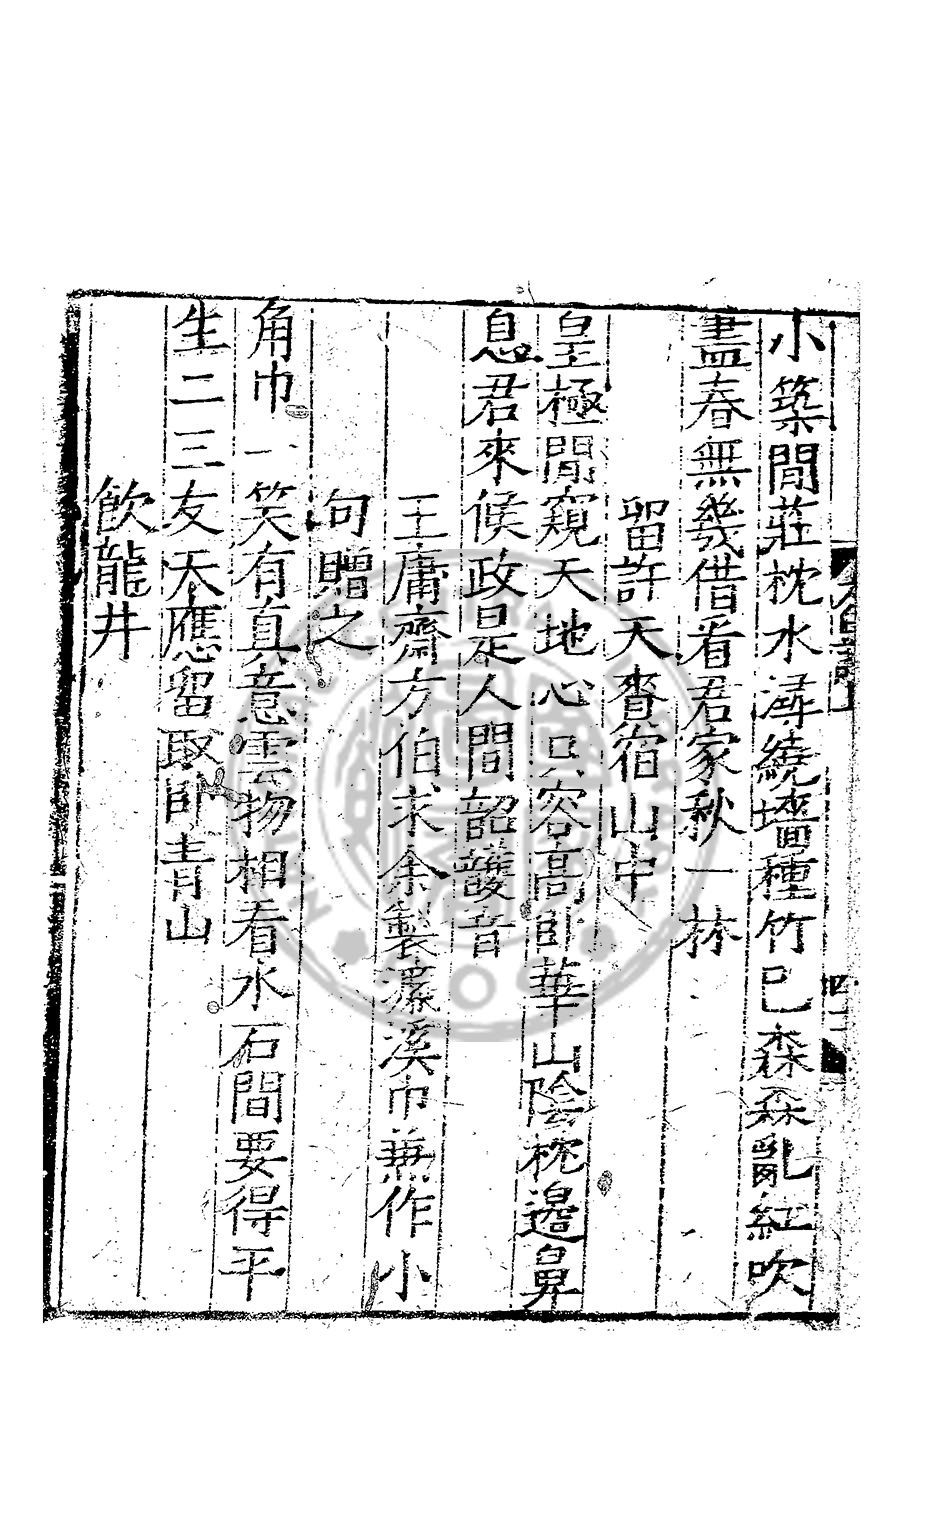 小築閒莊枕水潯繞墻種竹已森森亂紅吹
盡春無幾借看君家秋一林
留許天䝱宿山中
皇極閒窺天地心只容高卧華山陰枕邊鼻
息君來候政是人間韶頀音
王庸齋方伯求余製濂溪巾兼作小
句贈之
角巾一笑有真意雲物相看水石間要得平
生二三友天應留取卧青山
飲龍井